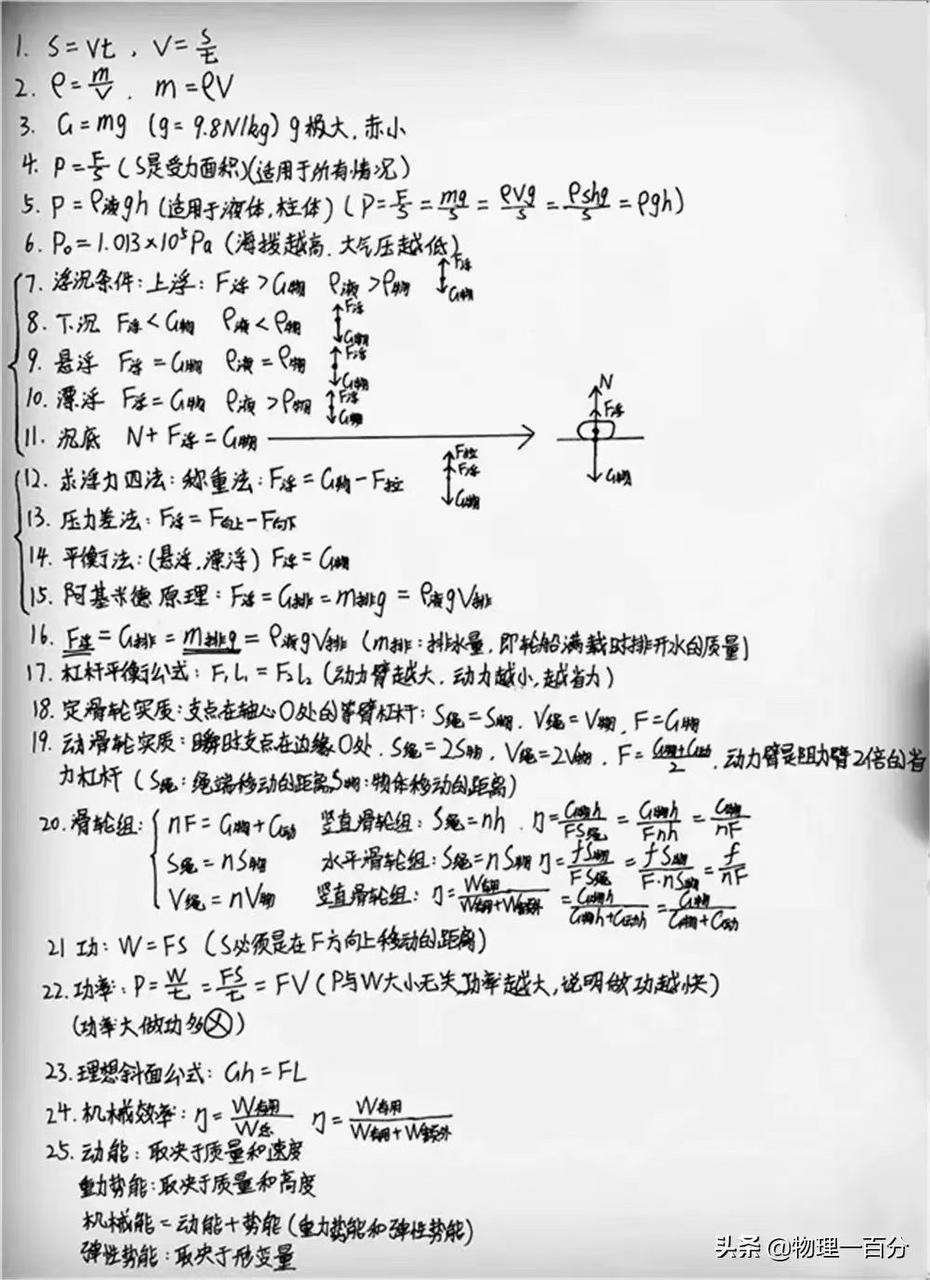 1. S=Vt, V=S/t
2. ρ=m/V, m=ρV
3. G=mg (g=9.8N/kg) g极大,赤小
4. P=F/S (S是受力面积)(适用于所有情况)
5. P=ρ液gh (适用于液体,柱体) (P=F/S=mg/S=ρVg/S=ρshg/S=ρgh)
6. P₀=1.013×10⁵Pa (海拔越高,大气压越低)
7. 浮沉条件:上浮:F浮>G物 ρ液>ρ物 F浮 G物
8. 下沉 F浮<G物 ρ液<ρ物 F浮 G物
9. 悬浮 F浮=G物 ρ液=ρ物 F浮 G物
10. 漂浮 F浮=G物 ρ液>ρ物 F浮 G物
11. 沉底 N+F浮=G物 N F浮 G物
12. 求浮力四法:称重法:F浮=G物-F拉 F拉 F浮 G物
13. 压力差法:F浮=F向上-F向下
14. 平衡法:(悬浮,漂浮) F浮=G物
15. 阿基米德原理:F浮=G排=m排g=ρ液gV排
16. F浮=G排=m排g=ρ液gV排 (m排:排水量,即轮船满载时排开水的质量)
17. 杠杆平衡公式:F₁L₁=F₂L₂ (动力臂越大,动力越小,越省力)
18. 定滑轮实质:支点在轴心O处的等臂杠杆:S绳=S物,V绳=V物,F=G物
19. 动滑轮实质:瞬时支点在边缘O处,S绳=2S物,V绳=2V物,F=(G物+G动)/2,动力臂是阻力臂2倍的省
力杠杆 (S绳:绳端移动的距离S物:物体移动的距离)
20. 滑轮组: nF=G物+G动 竖直滑轮组:S绳=nh,η=G物h/FS绳=G物h/Fnh=G物/nF
S绳=nS物 水平滑轮组:S绳=nS物 η=fS物/FS绳=fS物/F·nS物=f/nF
V绳=nV物 竖直滑轮组:η=W有用/(W有用+W额外)=G物h/(G物h+G动h)=G物/(G物+G动)
21 功:W=FS (S必须是在F方向上移动的距离)
22. 功率:P=W/t=FS/t=FV (P与W大小无关,功率越大,说明做功越快)
(功率大做功多ⓧ)
23. 理想斜面公式:Gh=FL
24. 机械效率:η=W有用/W总 η=W有用/(W有用+W额外)
25. 动能:取决于质量和速度
重力势能:取决于质量和高度
机械能=动能+势能(重力势能和弹性势能)
弹性势能:取决于形变量
头条 @物理一百分